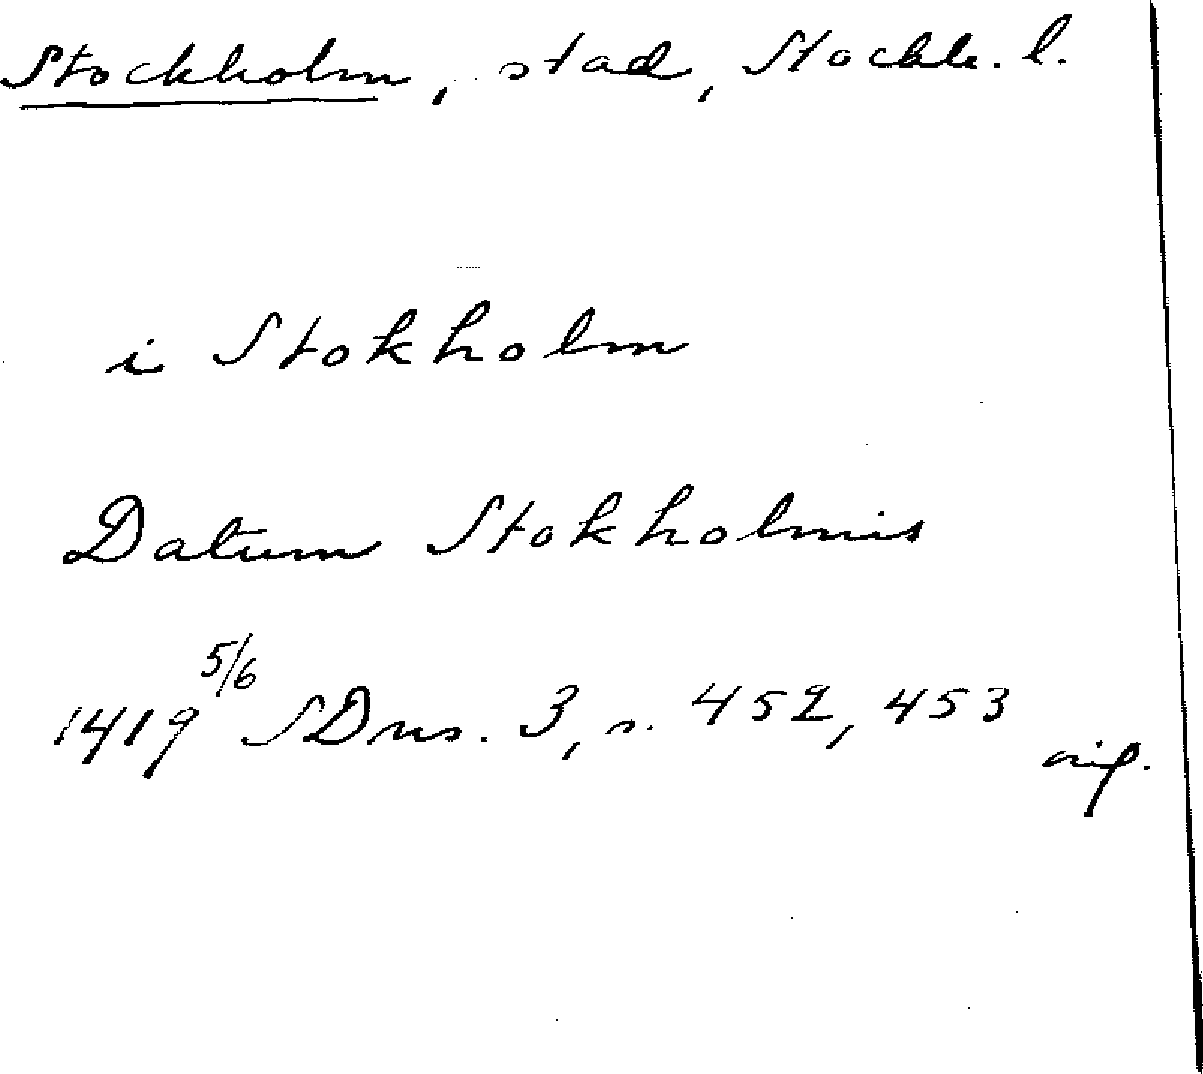 Stockholm, stad, Stockh. l.
i Stokholm
Datum Stokholmis
1419 5/6 SDns. 3, s. 452, 453
orig.